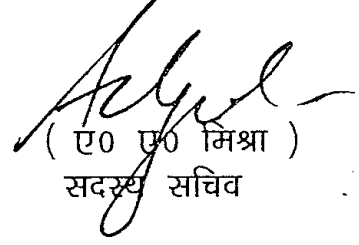 ( ए0 ए0 मिश्रा )
सदस्य सचिव